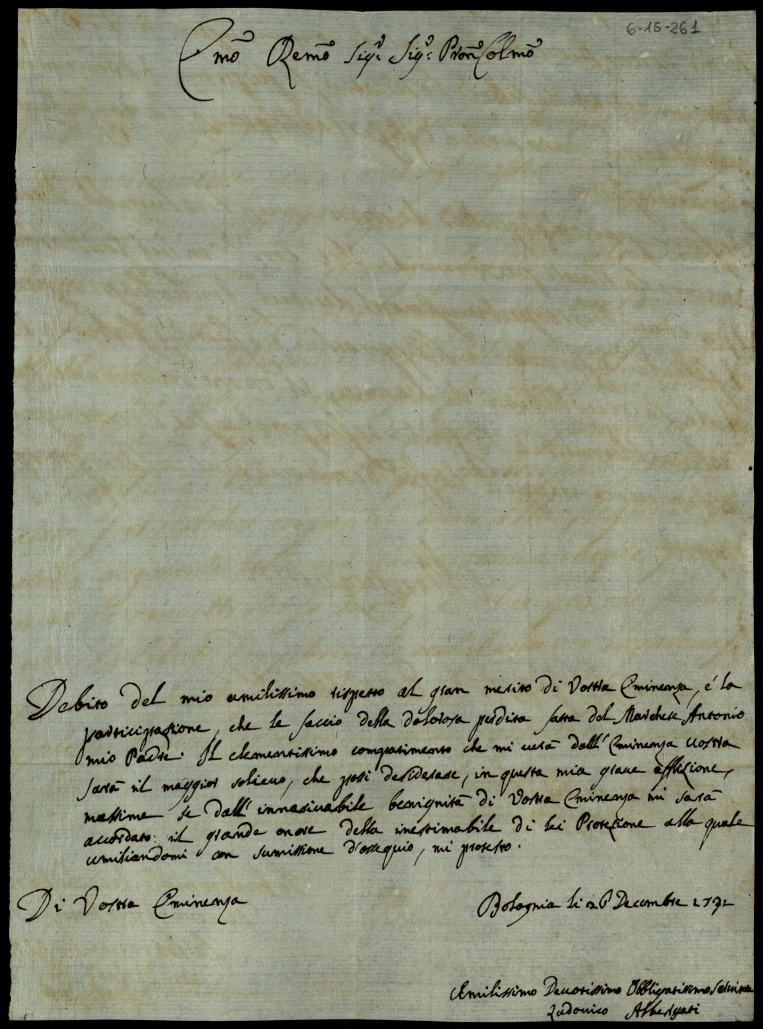 6-15-261
Emo Remo Sigr Sigr Pron Colmo
Debito del mio umilissimo rispetto al gran merito di Vostra Eminenza, é la
participazione, che le faccio della dolorosa perdita fatta del Marchese Antonio
mio Padre. Il clementissimo compatimento che mi verà dall' Eminenza vostra
sarà il maggior solievo, che possi desiderare, in questa mia grave afflizione,
massime se dall' innarivabile benignità di Vostra Eminenza mi sarà
accordato il grande onore della inestimabile di lei Protezione alla quale
umiliandomi con sumissione d'ossequio, mi protesto.
Di Vostra Eminenza
Bologna li 26 Decembre
Umilissimo Devotissimo Obbligatissimo Servitore
Ludovico Albergati